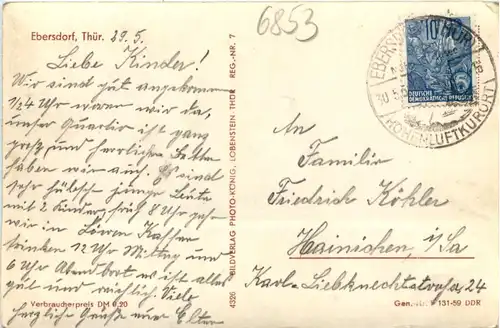 Ebersdorf, Thür. 29.5.
Liebe Kinder!
Wir sind gut angekommen
1/24 Uhr waren wir da,
unser Quartier ist ganz
groß und herrlichen Betten
haben wir auch. Es sind
sehr hübsch junge Leute
mit 2 Kinder, früh 8 Uhr geh-
wir im Löwen Kaffee
trinken 12 Uhr Mittag und
6 Uhr Abendbrot es ist alles
gut und reichlich. Viele
herzliche Grüße eure Eltern
Verbraucherpreis DM 0,20
4320 BILDVERLAG PHOTO-KÖNIG, LOBENSTEIN THÜR REG.-NR. 7
6853
EBERSDORF (THÜR)
30.5.
HÖHENLUFTKURORT
10
DEUTSCHE
DEMOKRATISCHE REPUBLIK
An
Familie
Friedrich Köhler
Hainichen, i/Sa
Karl-Liebknechtstraße, 24
Gen.-Nr. 131-59 DDR